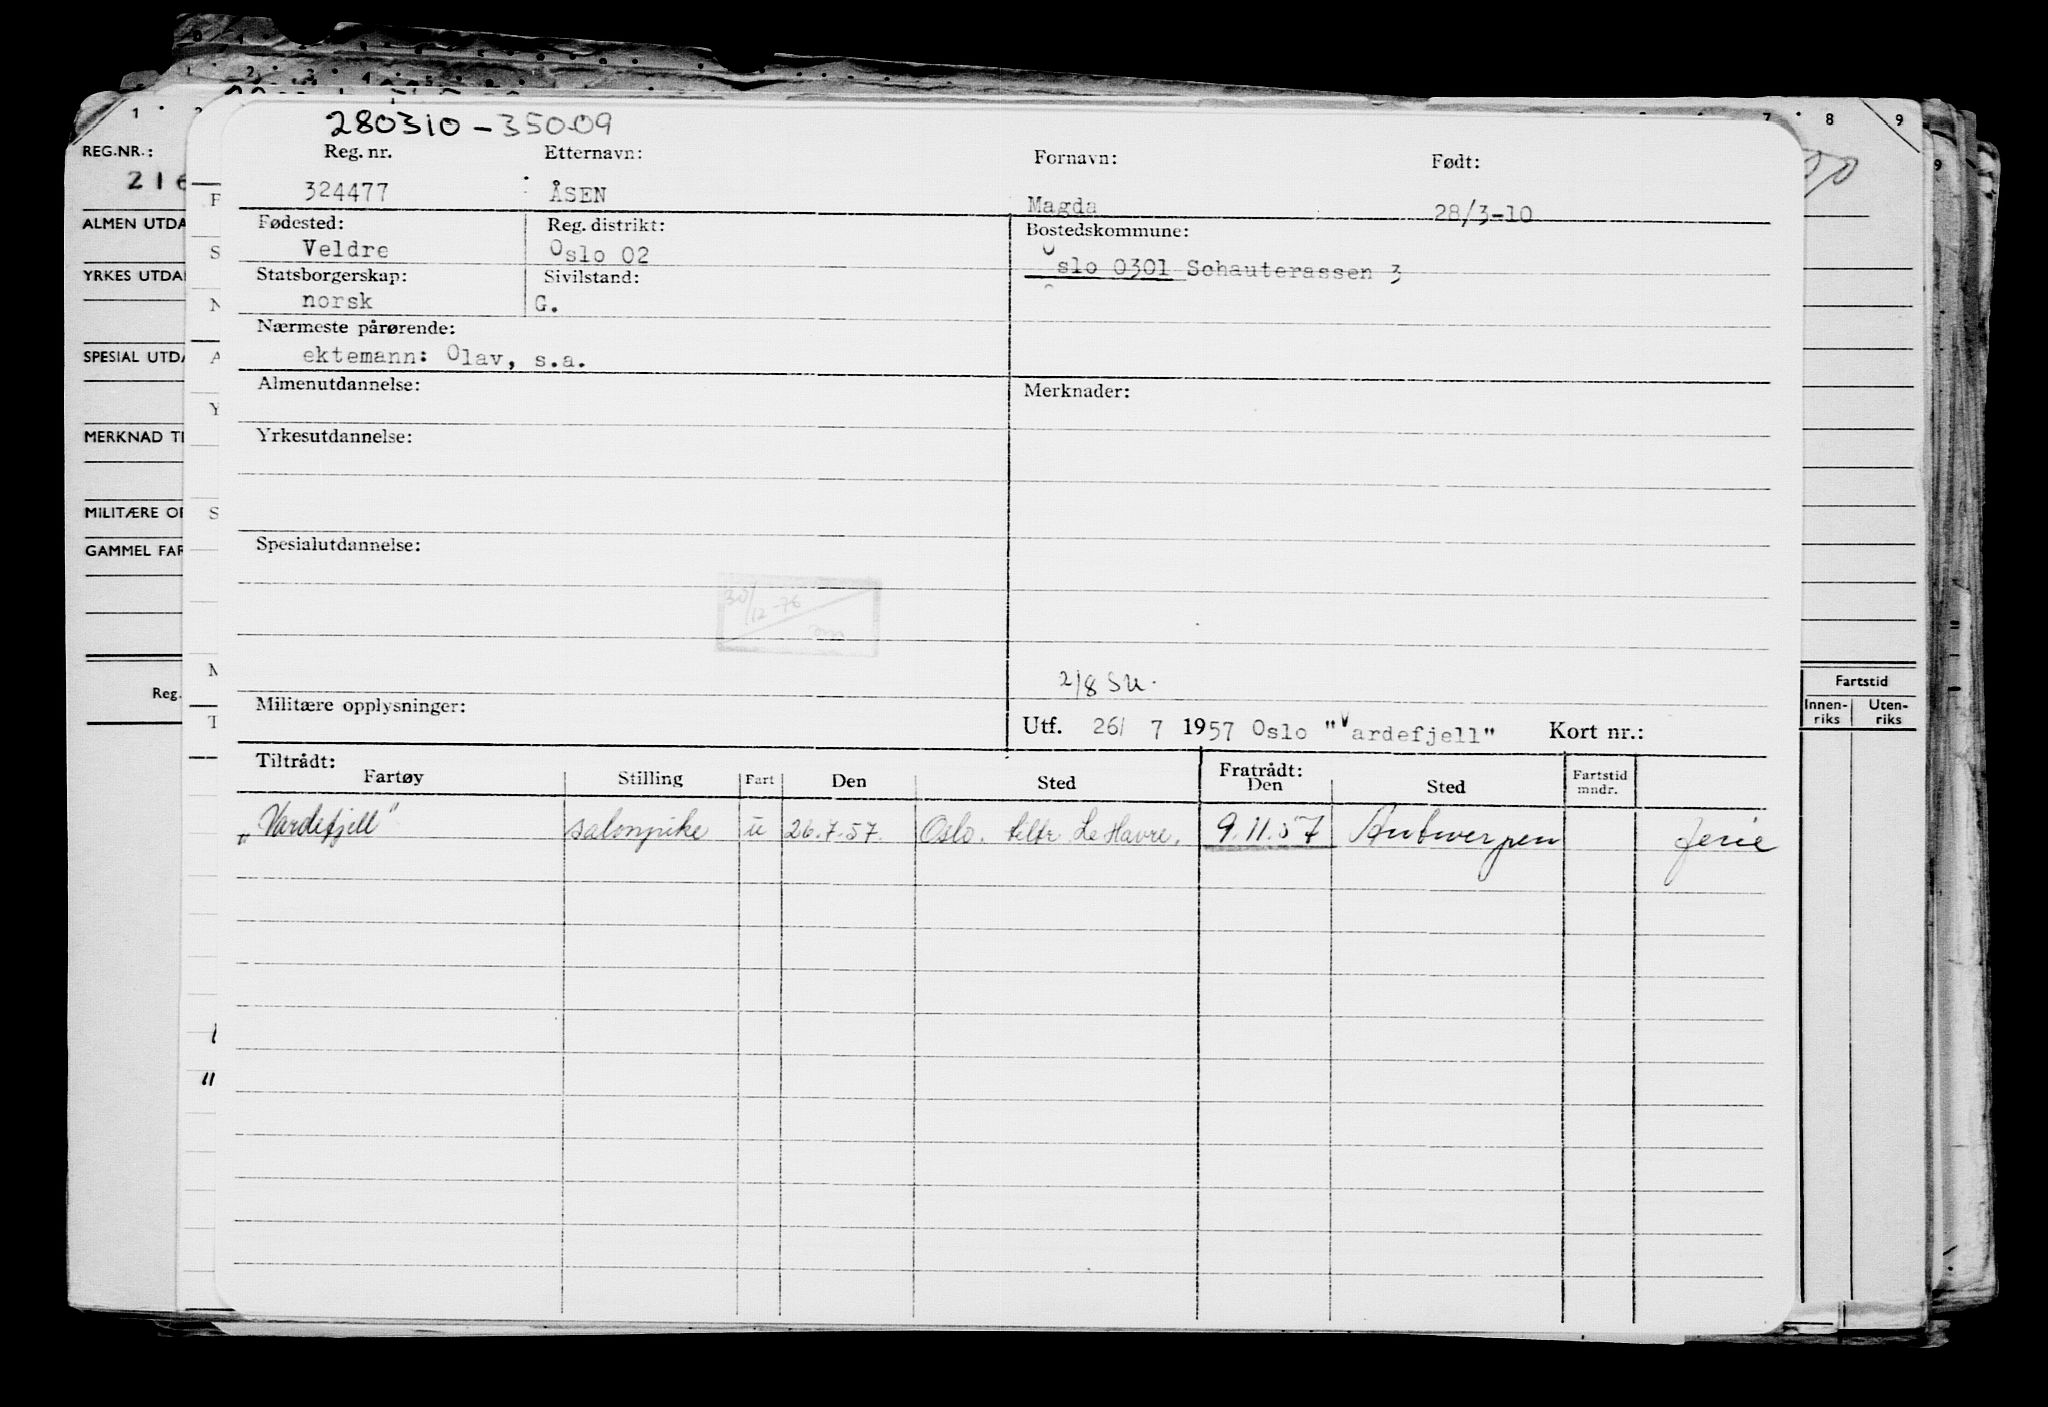 280310-35009
Reg. nr. Etternavn: Fornavn: Født:
324477 ÅSEN Magda 28/3-10
Fødested: Reg. distrikt: Bostedskommune:
Veldre Oslo 02 Oslo 0301 Schauterassen 3
Statsborgerskap: Sivilstand:
norsk G.
Nærmeste pårørende:
ektemann: Olav, s.a.
Almenutdannelse: Merknader:
Yrkesutdannelse:
Spesialutdannelse:
30/12-76
2/8 SU.
Militære opplysninger:
Utf. 26/ 7 1957 Oslo "Vardefjell" Kort nr.:
Tiltrådt: Fratrådt:
Fartøy Stilling Fart Den Sted Den Sted Fartstid mndr.
"Vardefjell" salongpike u 26.7.57. Oslo. tiltr. Le Havre. 9.11.57 Antwerpen ferie
1 2 3 4 5
1 7 8 9
REG.NR.:
216
ALMEN UTDA
YRKES UTDA
SPESIAL UTDA
MERKNAD TI
MILITÆRE OP
GAMMEL FAR
Reg.
F
S
N
A
Y
S
M
T
Fartstid
Innen-riks Uten-riks
9